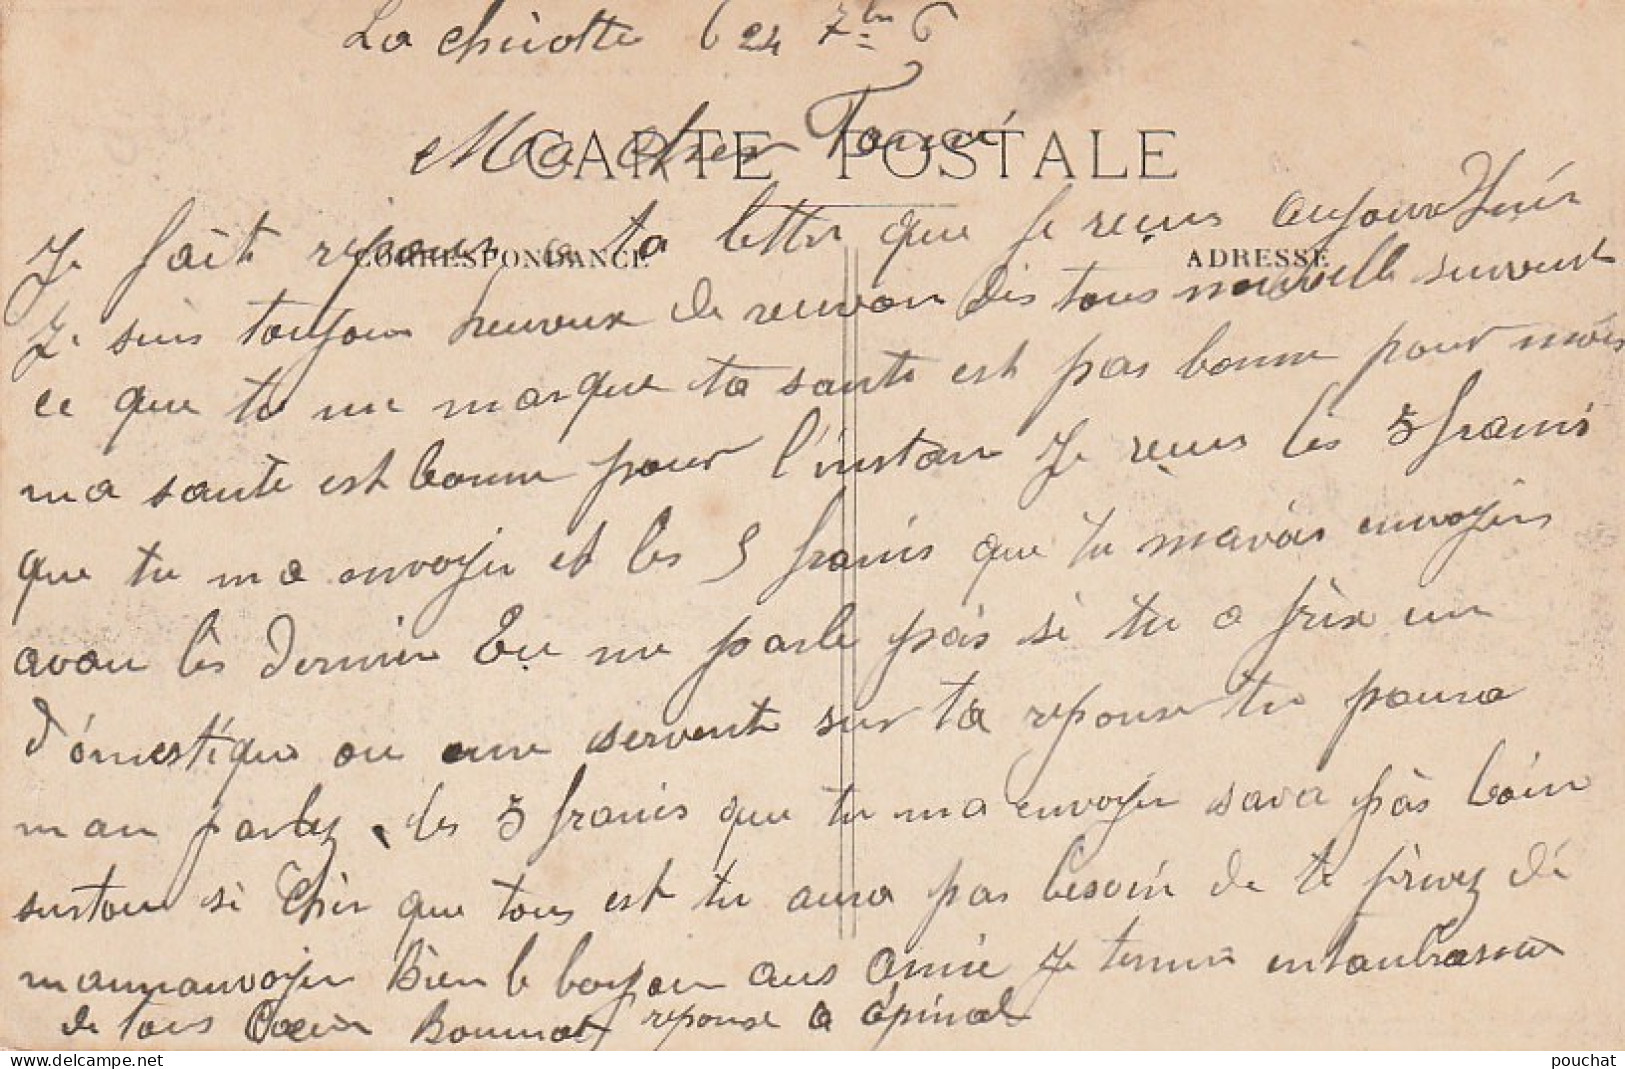 La Chicotte 24 7bre 6
CARTE POSTALE
Ma cher
CORRESPONDANCE
ADRESSE
Je fait repons a ta lettre que je reçus aujourdhuis
Je suis toujour heureux de revoir des tous suivent
ce que tu me marque ta sante est pas bonne pour mois
ma sante est bonne pour l'instan Je reçus les 5 francs
que tu ma envoyer et les 5 francs que tu mavais envoyers
avan les dernier Tu me parle pas si tu a prix un
domestique ou une servente sur ta reponse tu poura
man parlez les 5 francs que tu ma envoyer sara pas loin
surtou si cher que tous est tu aura pas besoin de te privez de
mannanvoyer Bien le bonjour aus amie Je termine entanbrasan
de tous Coeur Bonnot reponse a épinal
pouchat